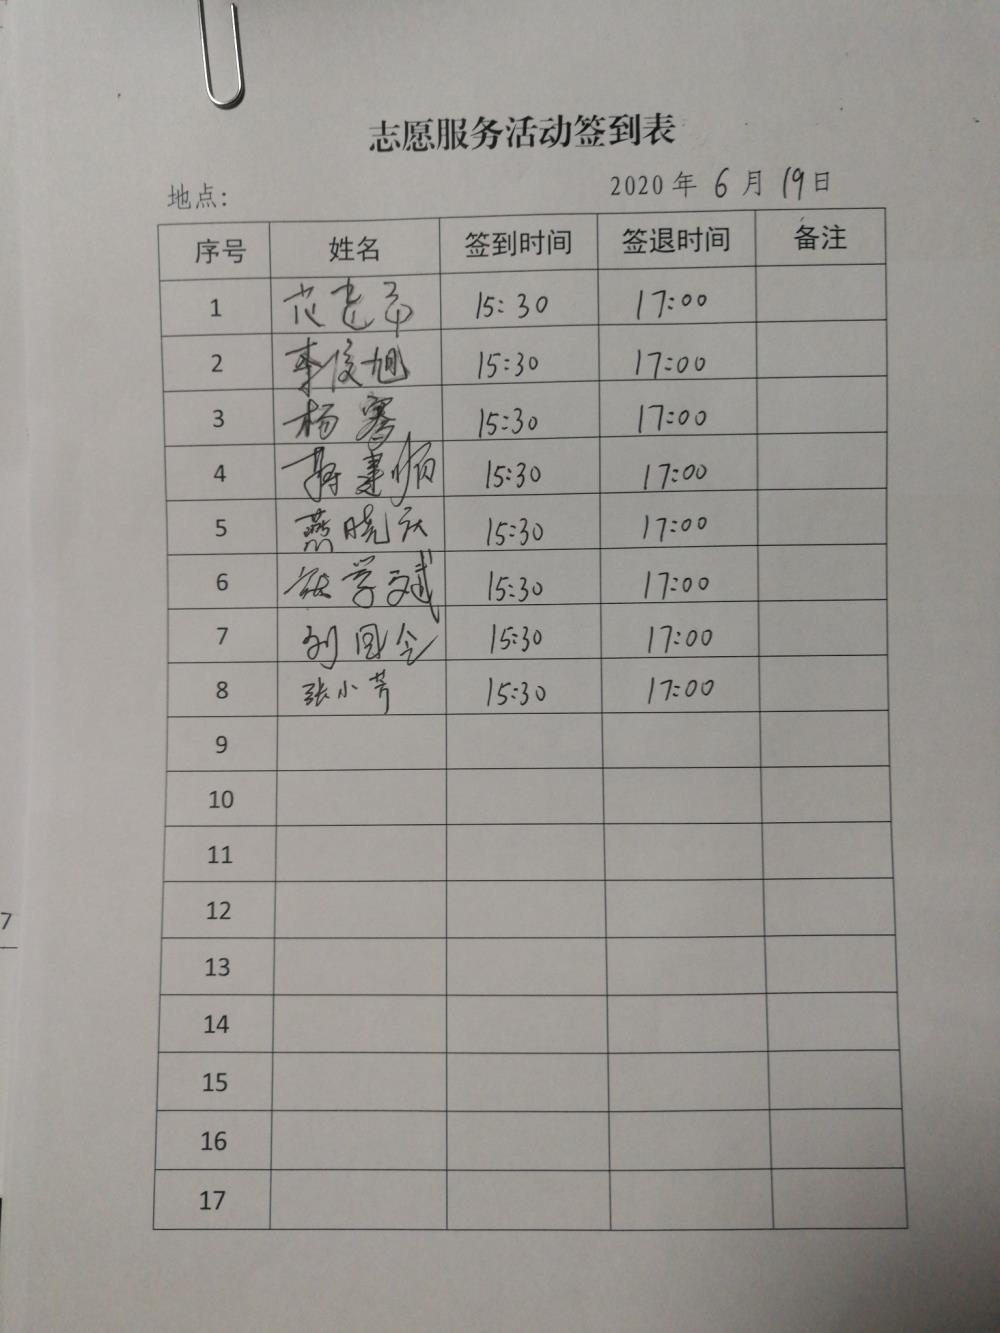 志愿服务活动签到表
地点: 2020 年 6 月 19 日
序号 姓名 签到时间 签退时间 备注
1 15:30 17:00
2 李俊旭 15:30 17:00
3 杨骞 15:30 17:00
4 蒋建顺 15:30 17:00
5 燕晓庆 15:30 17:00
6 学斌 15:30 17:00
7 刘国令 15:30 17:00
8 张小芳 15:30 17:00
9
10
11
12
13
14
15
16
17
7